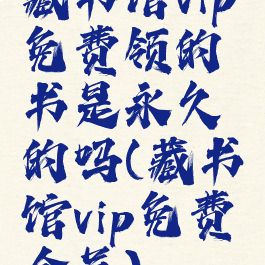 藏书馆vip
免费领的
书是永久
的吗(藏书
馆vip免费